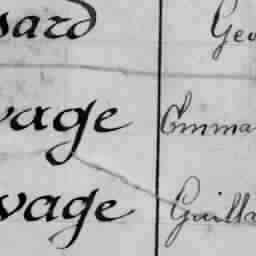 sard Geo
vage Emma
vage Guilla